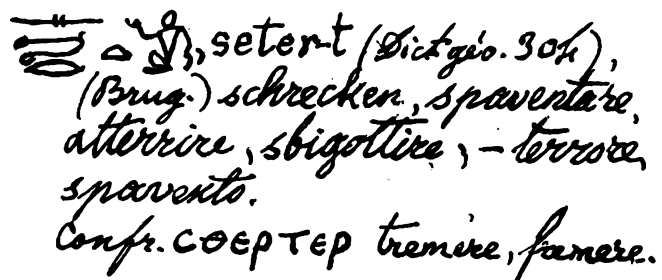 , seter-t (Dict géo. 304),
(Brug.) schrecken, spaventare,
atterrire, sbigottire; – terrore,
spavento.
Confr. ⲤⲐⲈⲢⲦⲈⲢ tremere,